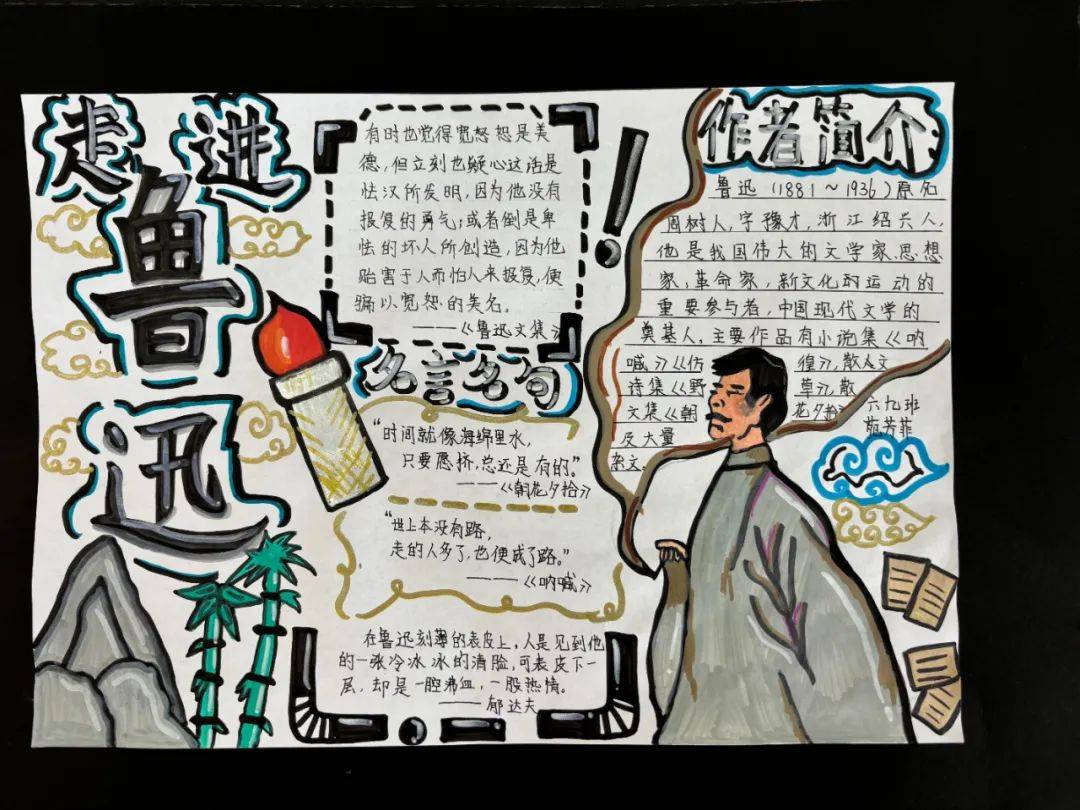 走进
鲁
迅
有时也觉得宽怒恕是美
德，但立刻也疑心这话是
怯汉所发明，因为他没有
报复的勇气；或者倒是卑
怯的坏人所创造，因为他
贻害于人而怕人来报复，便
骗以宽恕的美名。
——《鲁迅文集》
名言名句
“时间就像海绵里水，
只要愿挤，总还是有的。”
——《朝花夕拾》
“世上本没有路，
走的人多了，也便成了路。”
——《呐喊》
在鲁迅刻薄的表皮上，人是见到他
的一张冷冰冰的清脸，可表皮下一
层，却是一腔沸血，一股热情。
——郁达夫
作者简介
鲁迅（1881～1936）原名
周树人，字豫才，浙江绍兴人，
他是我国伟大的文学家、思想
家，革命家，新文化的运动的
重要参与者，中国现代文学的
奠基人，主要作品有小说集《呐
喊》《彷徨》，散文
诗集《野草》，散
文集《朝花夕拾》
及大量
杂文。
六九班
芳菲